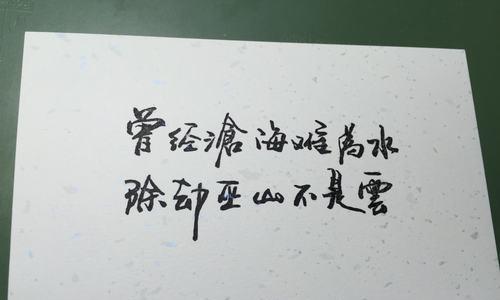 曾经滄海难為水
除却巫山不是雲